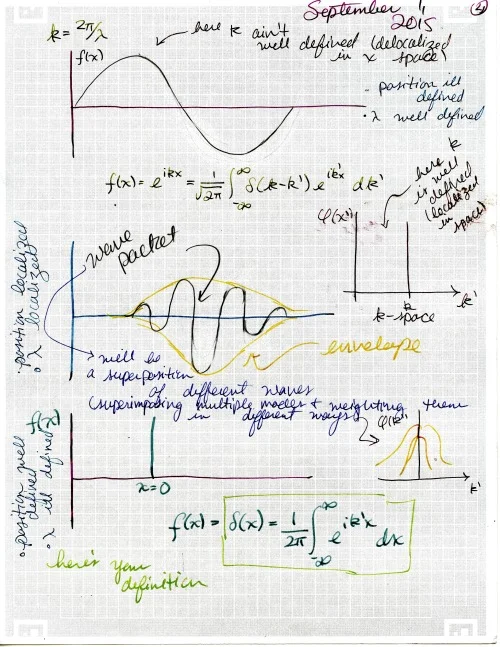 September 11
2015
k = 2π/λ
f(x)
here k ain't
well defined (delocalized
in x space)
- position ill
defined
• λ well defined
f(x) = e^{ikx} = 1/√2π ∫_{-∞}^{∞} δ(k-k') e^{ik'x} dk'
here k
is well
defined
(localized
in
space)
φ(x')
k
k'
k-space
• position localized
• λ localized
wave
packet
envelope
→ will be
a superposition
of different waves
(superimposing multiple modes + weighting them
in different ways)
φ(k')
k'
f(x)
x=0
• position well
defined
• λ ill defined
f(x) = δ(x) = 1/2π ∫_{-∞}^{∞} e^{ik'x} dx
here's your
definition